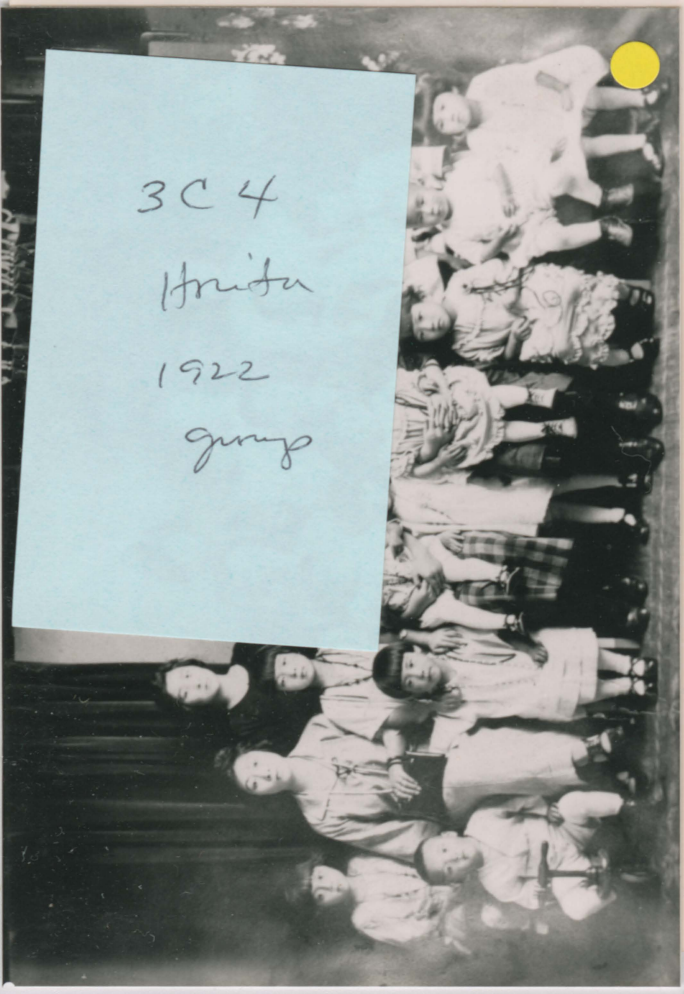 3C4
Honita
1922
group